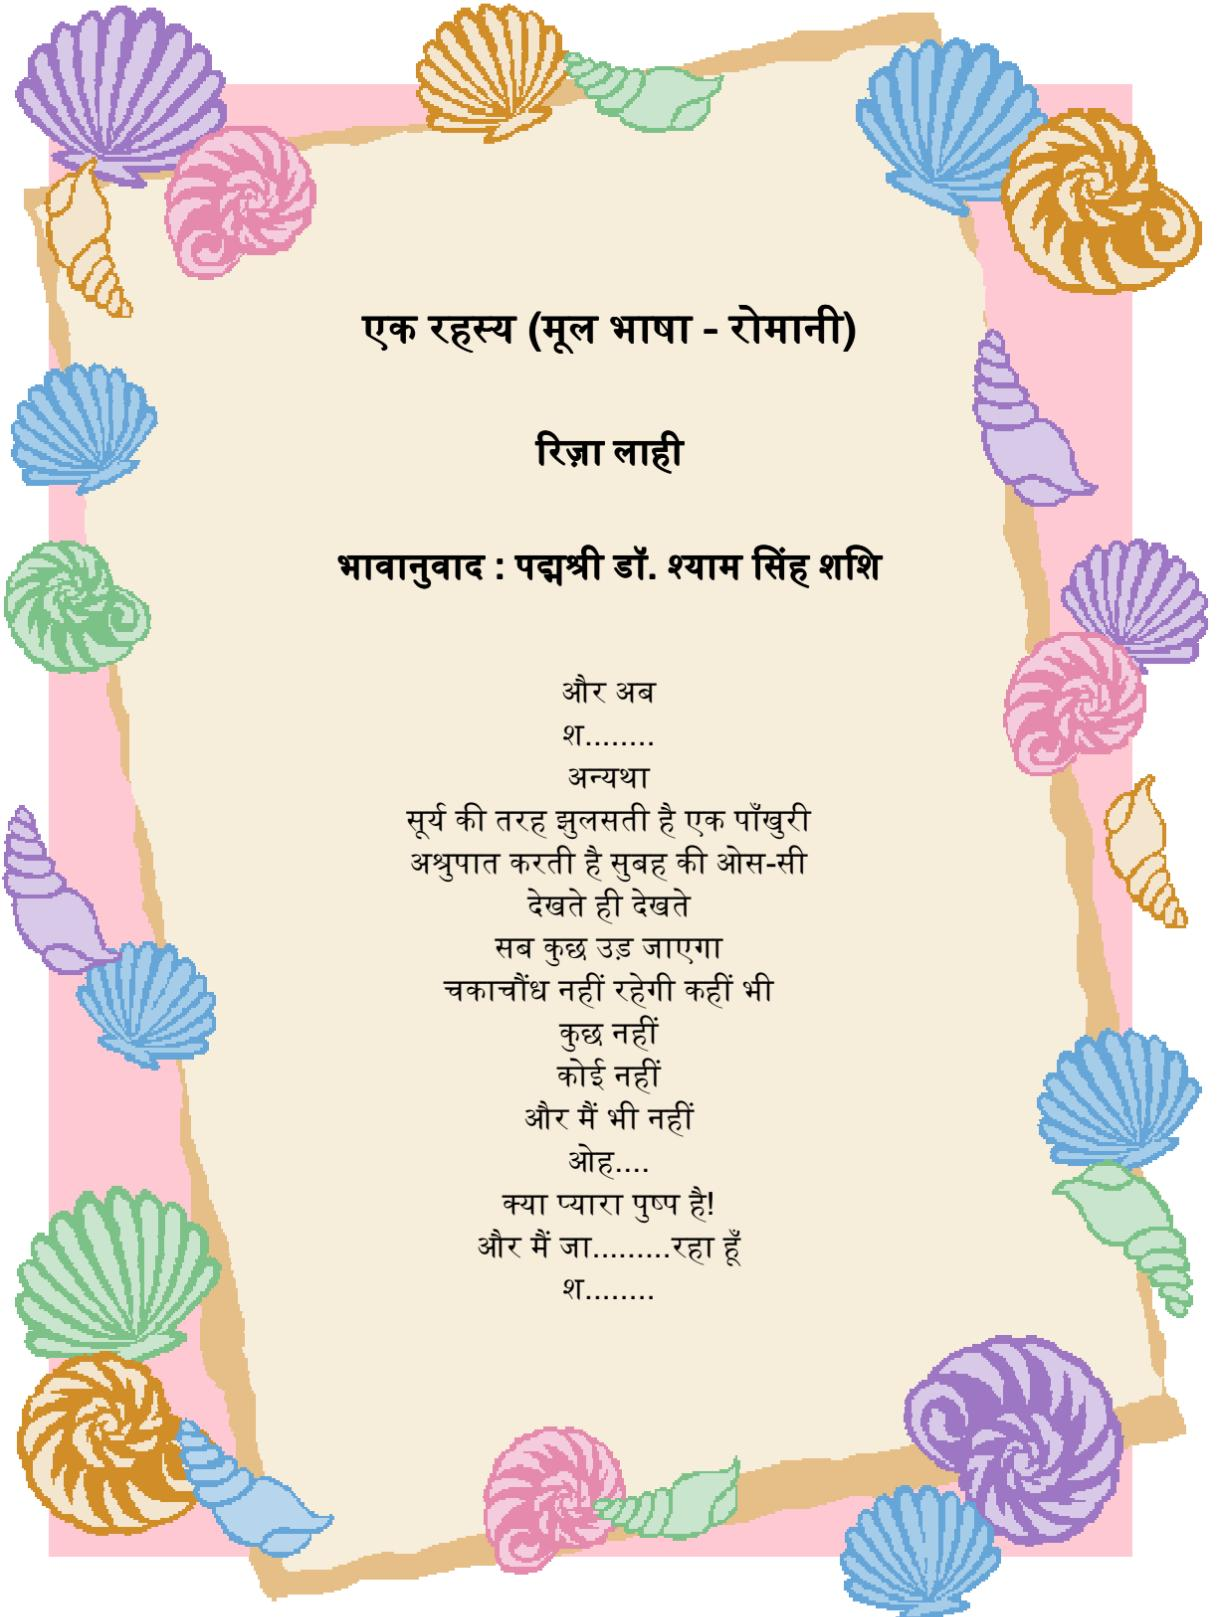 एक रहस्य (मूल भाषा - रोमानी)
रिज़ा लाही
भावानुवाद : पद्मश्री डॉ. श्याम सिंह शशि
और अब
श........
अन्यथा
सूर्य की तरह झुलसती है एक पाँखुरी
अश्रुपात करती है सुबह की ओस-सी
देखते ही देखते
सब कुछ उड़ जाएगा
चकाचौंध नहीं रहेगी कहीं भी
कुछ नहीं
कोई नहीं
और मैं भी नहीं
ओह....
क्या प्यारा पुष्प है!
और मैं जा.........रहा हूँ
श........